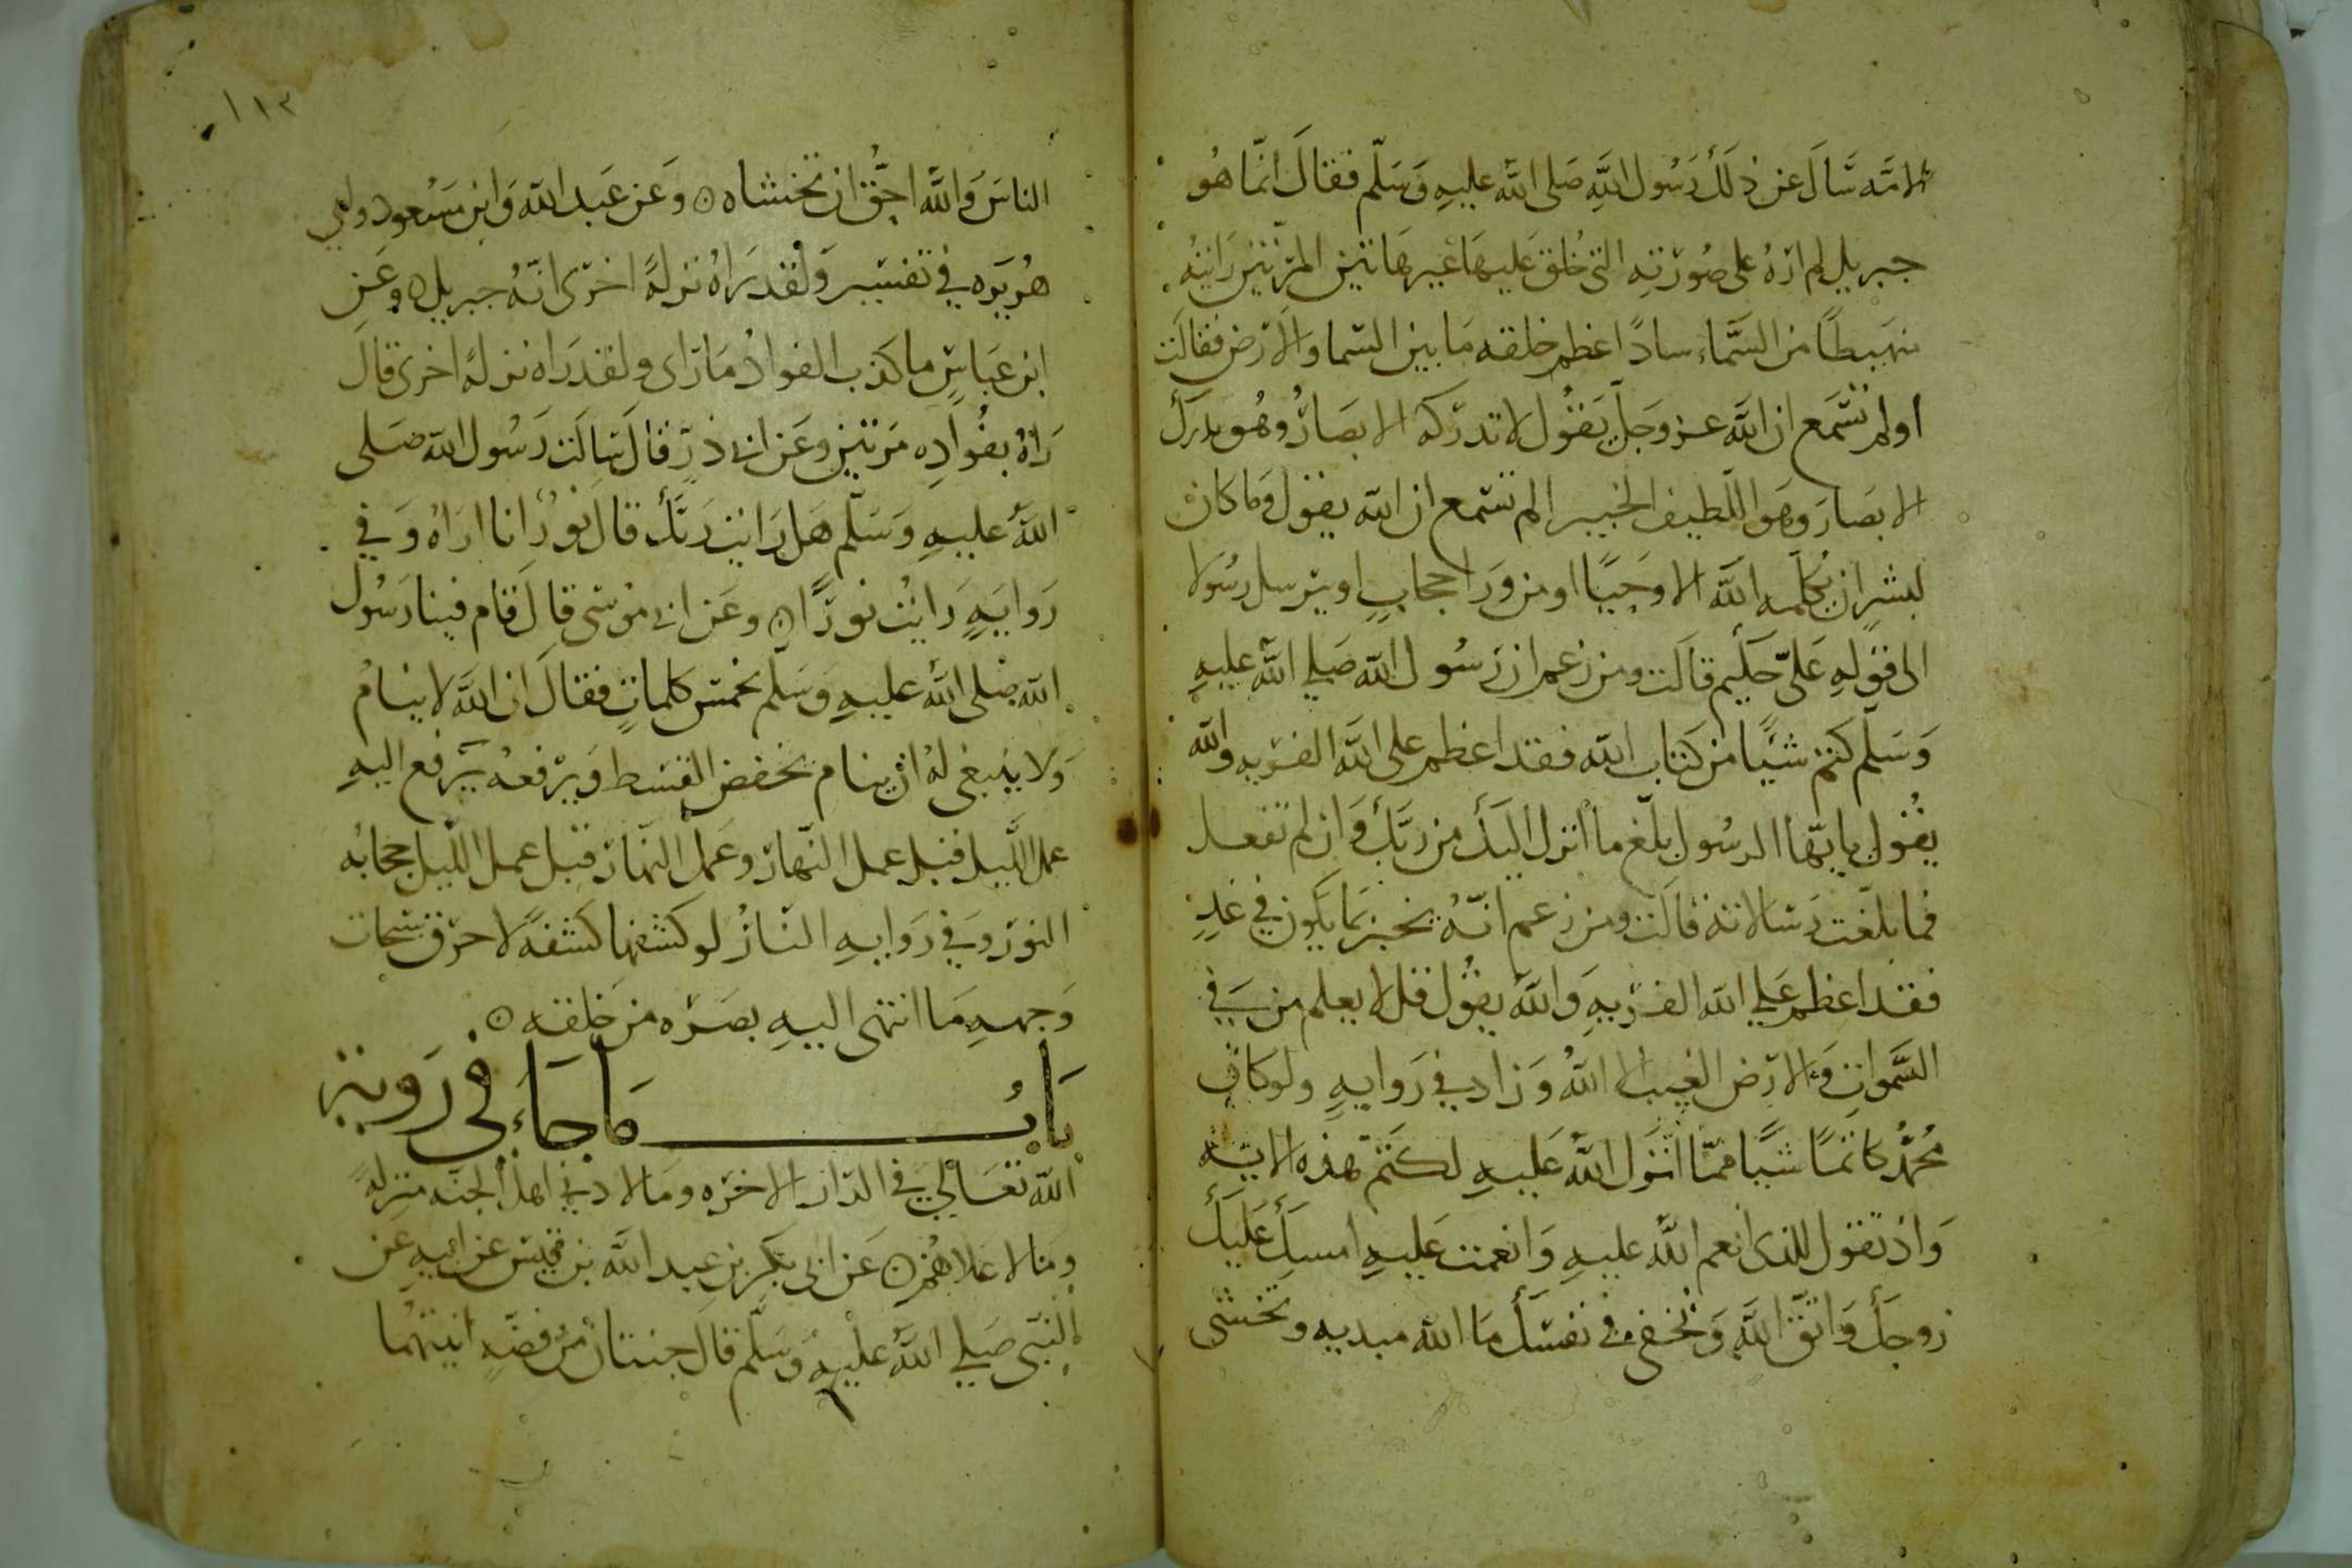 الامه سَالَ عن ذلك رَسُول اللهِ صَلى الله عليهِ وَسَلّم فقالَ انّما هُو
جبريل لم ارَهُ على صُورَتِه التى خُلق عَليهَا غير هَاتين المرّتين رَايتهُ
منهبطًا من السَّماء سادًا عظم خلقه مَا بين السّما والارَض فقالَت
اولم تسْمَع ان اللهَ عز وجلّ يَقُول لا تدركه الابصَارُ وهُو يدرك
الابصَارَ وهَو اللّطيف الخبير الم تسْمع ان الله يقول وَما كان
لبشرٍ ان يُكلّمه اللهَ الا وَحيًا او من وَرا حجابٍ او يرسل رسُولا
الى قولهِ عَلىّ حَكيم قالَت ومن زعم ان رَسُول الله صَلى اللهُ عليهِ
وَسَلّم كتم شيًا من كتاب الله فقد اعظم على اللهَ الفريه والله
يقُول يا ايّها الرسُول بلّغ ما انزل اليكَ من رَبّكَ وَان لم تفعل
فما بلّغت رَسَالاته قالَت ومن زعم انّهُ يخبر بمَا يكون في غدٍ
فقد اعظم عَلى الله الفريهِ وَاللهُ يقُول قل لا يعلم من في
السَّمواتِ وَالارَض الغيب الا اللهُ وَزاد في رَوايهٍ ولو كان
مُحمّد كاتمًا شيًا ممّا انزَل اللهُ عَليهِ لكتم هذه الايه
وَاذ تقول للذى انعم اللهُ عليهِ وَانعمت عَليهِ امسِك عَليكَ
زوجَكَ وَاتق اللهَ وَتخفى في نفسِكَ مَا الله مبديه وتخشى
١١٣
الناسَ وَاللهُ احَقُّ ان تخشاه ۞ وَعن عَبد الله وَابن مسَعود وابي
هُريَره في تفسير وَلقد رَاهُ نزلهً اخرَى انّهُ جبريل ۞ وعَن
ابن عَباسٍ ما كذب الفوادُ مَا رَاى ولقد رَاه نزلهً اخرى قالَ
رَاهُ بفُوادِه مَرتين وعَن ابى ذرٍّ قالَ سَالَت رَسُول الله صَلى
اللهُ عليهِ وَسَلّم هَل رَايت رَبّكَ قالَ نورٌ انا ارَاهُ وَفي
رَوايهٍ رَايتُ نورًا ۞ وعَن ابى مُوسَى قالَ قام فينا رَسُول
الله صَلى اللهُ عليهِ وَسَلّم بخمس كلماتٍ فقالَ ان اللهَ لا ينامُ
وَلا ينبغى لهُ ان ينام يخفض القسط وَيرفعه يرَفع اليهِ
عمل اللّيل قبل عمل النّهار وعَمل النّهار قبل عمل اللّيل حجابُه
النور وَفي رَوايهِ النّارُ لو كشفها كشفهً لاحرَق سبحات
وَجههِ مَا انتهى اليهِ بصَره من خلقه ۞
بَابُ مَا جَاءَ في رَويَة
اللهِ تعَالى في الدّار الاخرَه ومَا لادنى اهل الجنّه منزلهً
ومَا لاعَلاهُم ۞ عَن ابى بكرِ بن عبد اللهَ بن قيسٍ عن ابيهِ عَن
النبّى صَلى اللهُ عليهِ وَسَلّم قالَ جنتان من فضّهٍ انيتهُما